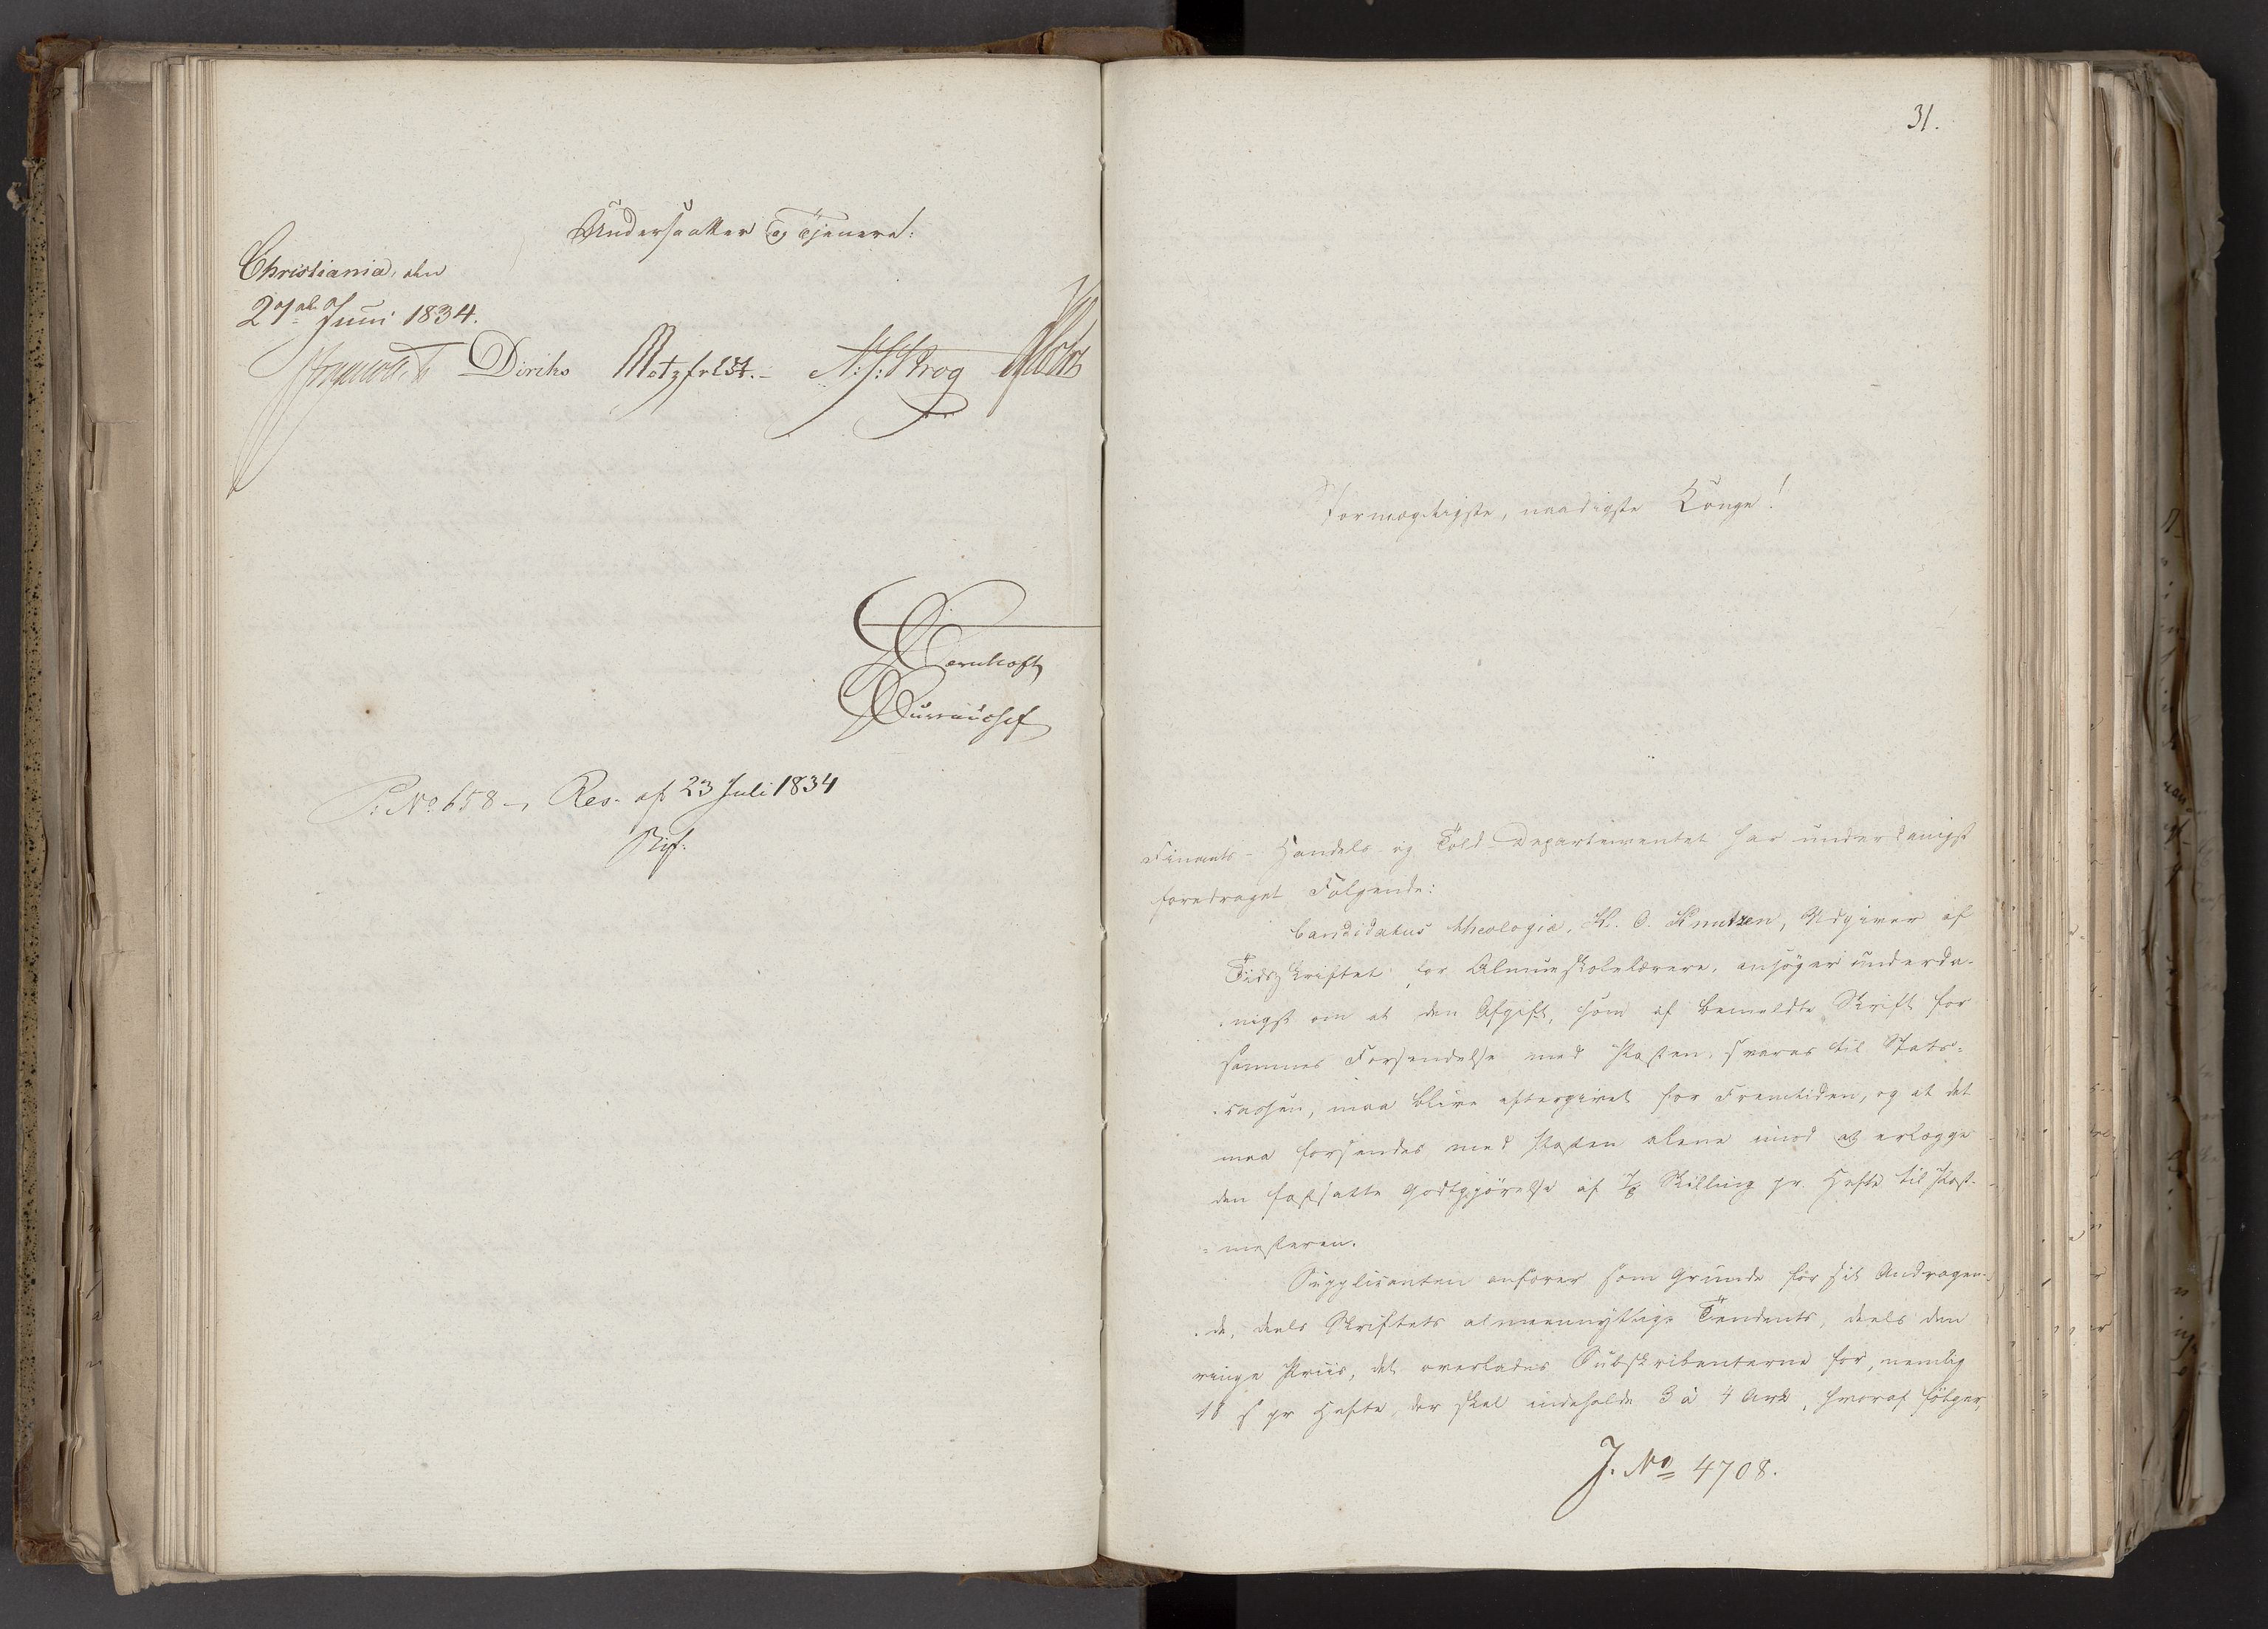 Undersaatter og Tjenere:
Christiania, den
27de Juni 1834.
Diriks Motzfeldt.- N: J: Krog
Bernhoft
Bureauchef
P: No 658 -, Res. af 23 Juli 1834
31.
Stormægtigste, naadigste Konge!
Finants- Handels- og Told-Departementet har underdanigst
foredraget Følgende:
Candidatus theologiæ, K. O. Knutzen, Udgiver af
Tidsskriftet for Almueskolelærere, ansøger underda-
nigst om at den Afgift, som af bemeldte Skrift for
sammes Forsendelse med Posten, svares til Stats-
cassen, maa blive eftergivet for Fremtiden, og at det
maa forsendes med Posten alene imod at erlægge
den fastsatte Godtgjørelse af ⅞ Skilling pr. Hefte til Post-
mesteren.
Supplicanten anfører som Grunde for sit Andragen-
de, deels Skriftets almeennyttige Tendents, deels den
ringe Priis, det overlades Subskribenterne for, nemlig
18 ß pr Hefte, der skal indeholde 3 à 4 Ark, hvoraf følger,
J. No 4708.